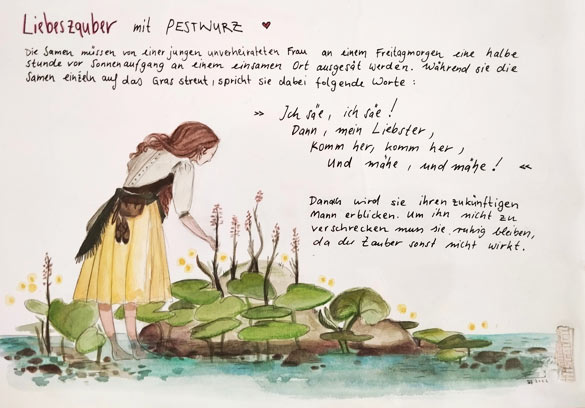 Liebeszauber mit PESTWURZ ♥
Die Samen müssen von einer jungen unverheirateten Frau an einem Freitagmorgen eine halbe
stunde vor Sonnenaufgang an einem einsamen Ort ausgesät werden. Während sie die
Samen einzeln auf das Gras streut, spricht sie dabei folgende Worte:
» Ich säe, ich säe!
Dann, mein Liebster,
Komm her, komm her,
Und mähe, und mähe! «
Danach wird sie ihren zukünftigen
Mann erblicken. Um ihn nicht zu
verschrecken muss sie ruhig bleiben,
da der Zauber sonst nicht wirkt.